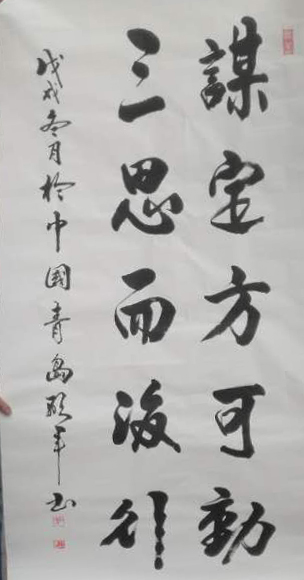 謀定方可動
三思而後行
戊戌冬月於中国青島
書